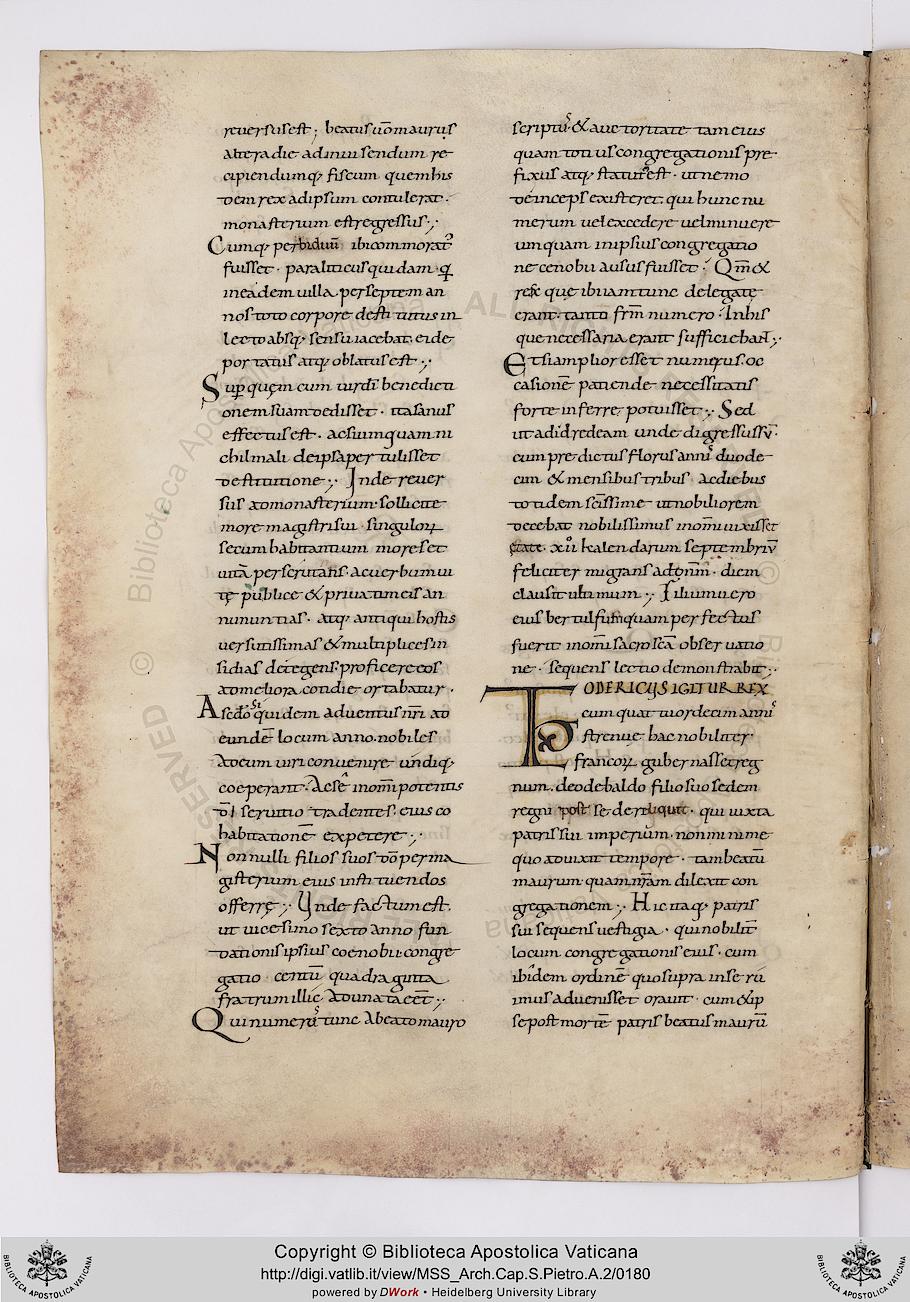 reuersus est ; beatus u͞o maurus
altera die ad inuisendum re-
cipiendumq; fiscum quem his
dem rex ad ipsum contulerat ·
monasterium est regressus ·;
Cumq; per biduū ibi commorat᷒
fuisset · paraliticus quidam q͛
in eadem uilla per septem an
nos toto corpore destitutus in
lecto absq; sensu iacebat. ei de
portatus atq; oblatus est ·;
Sup̱ quęm cum uir dī benedicti
onem suam dedisset · ita sanus
effectus est · ac si umquam ni
chil mali de ipsa pertulisset
destitutione ·; Inde reuer
sus ad monasterium · sollicite
more magistri sui · singuloꝝ
secum habitantium mores et
uitā perscrutans · ac uerbum ui
tę publice & priuatim eis an
nuntias · atq; antiqui hostis
uersutissimas & multiplices in
sidias detegens proficere eos
ad meliora condie ortabatur ·
A sc͞do si quidem aduentus n͞ri ad
eundē locum anno. nobiles
ad eum uiri conuenire undiq;
coeperant · Ac se in omnipotentis
d͞i seruitio tradentes. eius co
habitationē expetere ·;
Nonnulli filios suos d͞o per ma
gisterium eius instituendos
offerrę ·; Unde factum est.
ut uicesimo sexto anno fun
dationis ipsius coenobii · congre
gatio centū quadraginta
fratrum illic adunata eēt ·;
Qui numerus tunc a beato mauro
scriptus · & auctoritate tam eius
quam totius congregationis pre-
fixus atq; statutus est · ut nemo
deinceps existeret. qui hunc nu
merum uel excedere uel minuere
umquam in ipsius congregatio
ne cenobii ausus fuisset · Qm̄ &
res que ibi iam tunc delegate
erant · tanto frm̄ numero · In his
que necessaria erant sufficiebant ·;
Et si amplior esset numerus. oc
casionē patiende necessitatis
forte inferre potuisset ·; Sed
ut ad id redeam unde digressus sū ·
cum predictus florus annis duode-
cim & mensibus tribus · ac diebus
totidem sc͞issime ut nobiliorem
decebat nobilissimus in om̄i uixisset
ętate. xii kalendarum septembriū
feliciter migrans ad dn̄m · diem
clausit ultimum ·; Filium uero
eius bertulfum quam perfectus
fuerit in om̄i sacrosc͞a obseruatio
ne · sequens lectio demonstrabit ·;
TODERICUS IGITUR REX
cum quattuordecim annis
strenue hac nobiliter
francoꝝ gubernasset reg
num. deodebaldo filio suo sedem
regni post se dereliquit · qui iuxta
patris sui imperium · non minime
quo aduixit tempore · tam beatū
maurum quam nr̄am dilexit con
gregationem ·; Hic itaq; patris
sui sequens uestigia · qui nobilit͛
locum congregationis eius · cum
ibidem ordinē quo supra inseru
imus aduenisset orauit · cum & ip
se post mortē patris beatus maurū
Copyright © Biblioteca Apostolica Vaticana
http://digi.vatlib.it/view/MSS_Arch.Cap.S.Pietro.A.2/0180
powered by DWork • Heidelberg University Library